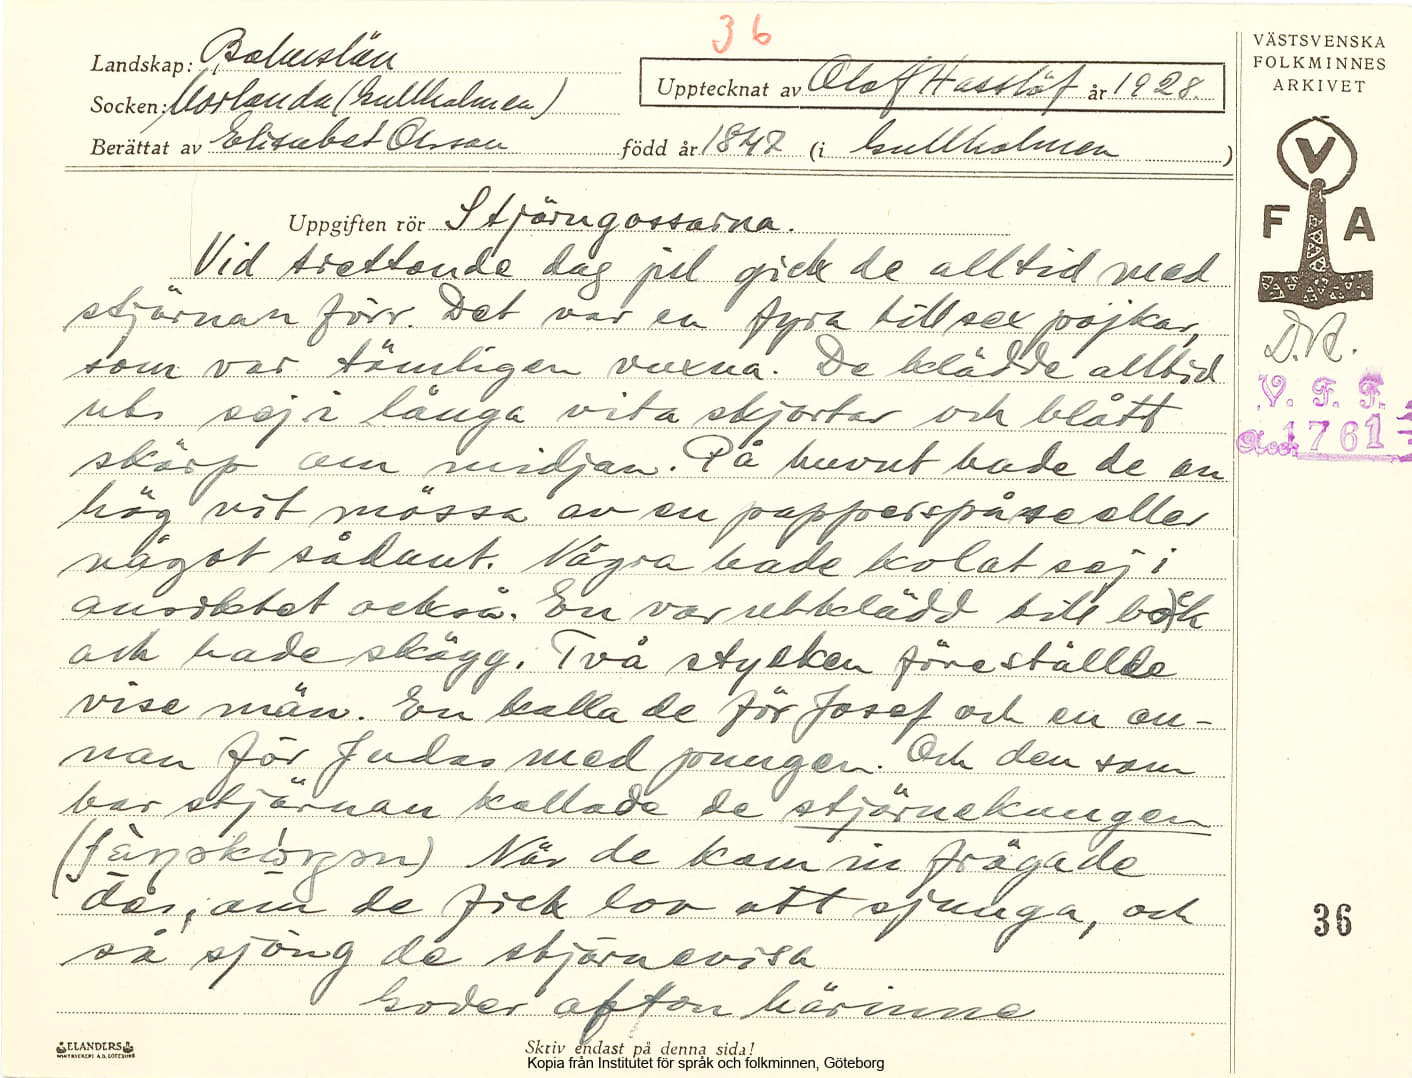 36
Landskap: Bohuslän
Socken: Morlanda (Gullholmen)
Berättat av Elisabet Olsson född år 1847 (i Gullholmen )
Upptecknat av Olof Hasslöf år 1928.
VÄSTSVENSKA
FOLKMINNES
ARKIVET
V
F A
D.A.
V. F. F.
Acc. 1761
Uppgiften rör Stjärngossarna.
Vid trettande dag jul gick de alltid med
stjärnan förr. Det var en fyra till sex pojkar,
som var tämligen vuxna. De klädde alltid
ut sej i långa vita skjortar och blått
skärp om midjan. På huvut hade de en
hög vit mössa av en papperspåse eller
något sådant. Några hade kolat sej i
ansiktet också. En var utklädd till bock
och hade skägg. Två stycken föreställde
vise män. En kalla de för Josef och en an-
nan för Judas med pungen. Och den som
bar stjärnan kallade de stjärnekungen
När de kom in frågade
om de fick lov att sjunga, och
så sjöng de stjärnevisa
Goder afton härinne
36
ELANDERS
Skriv endast på denna sida!
Kopia från Institutet för språk och folkminnen, Göteborg